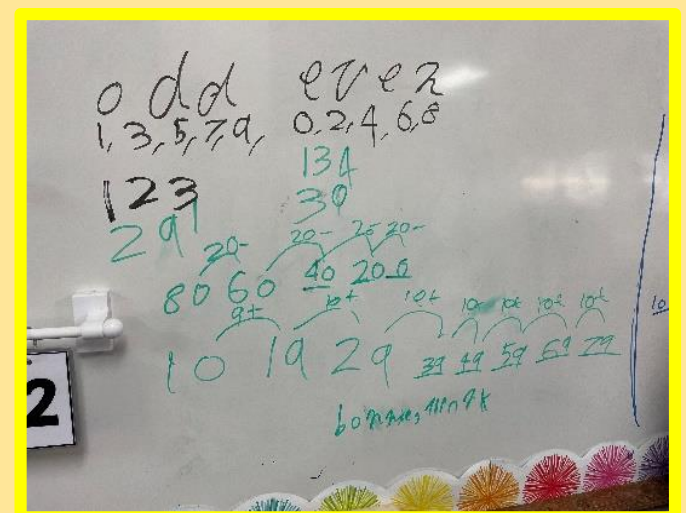 odd even
1, 3, 5, 7, 9, 0, 2, 4, 6, 8
134
123 30
291
20- 20- 20- 20-
80 60 40 20 0
9+ 10+ 10+ 10+ 10+ 10+ 10+
10 19 29 39 49 59 69 79
10
2